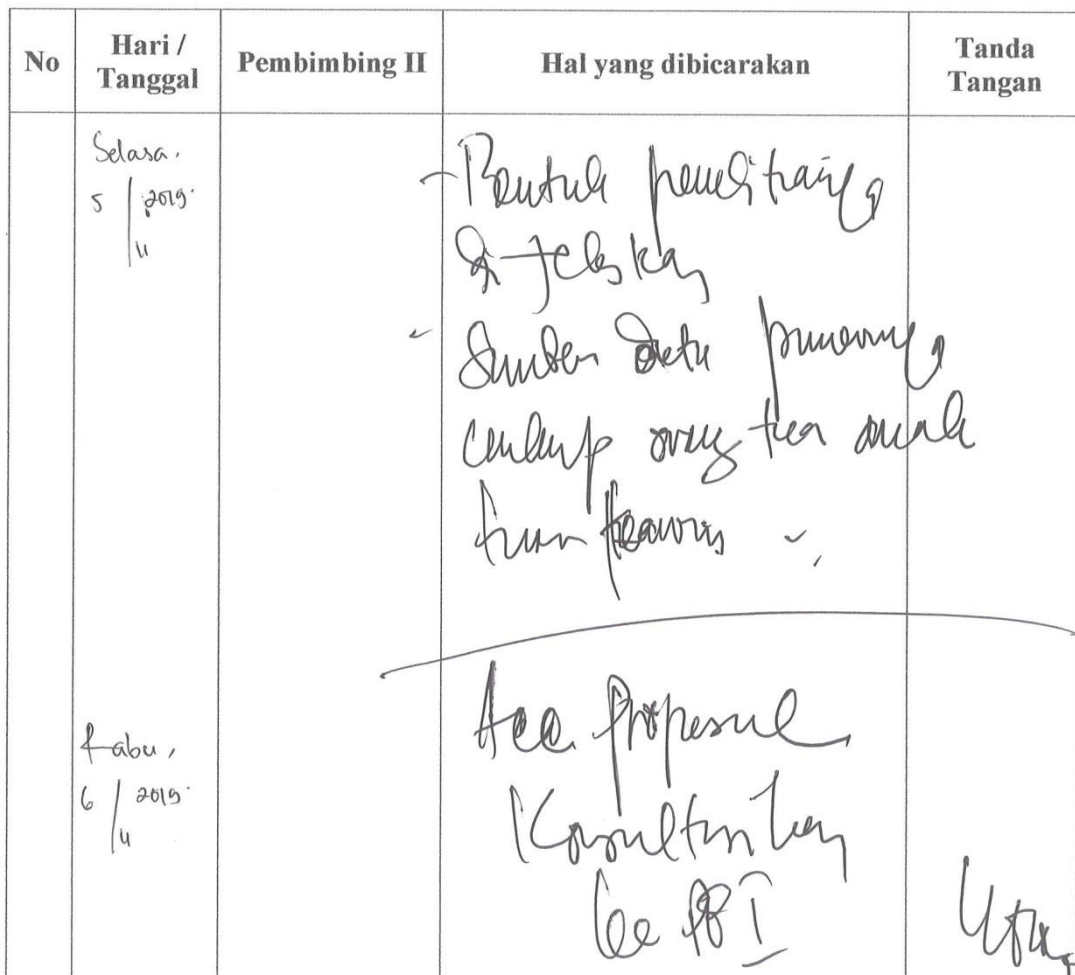 No Hari / Tanggal Pembimbing II Hal yang dibicarakan Tanda Tangan
Selasa,
5 / 11 2019
- Bentuk penelitiannya
di jelaskan
- Sumber data
cukup orang tua anak
Rabu,
6 / 11 2019
Acc Proposal
Konsultasikan
ke PB I